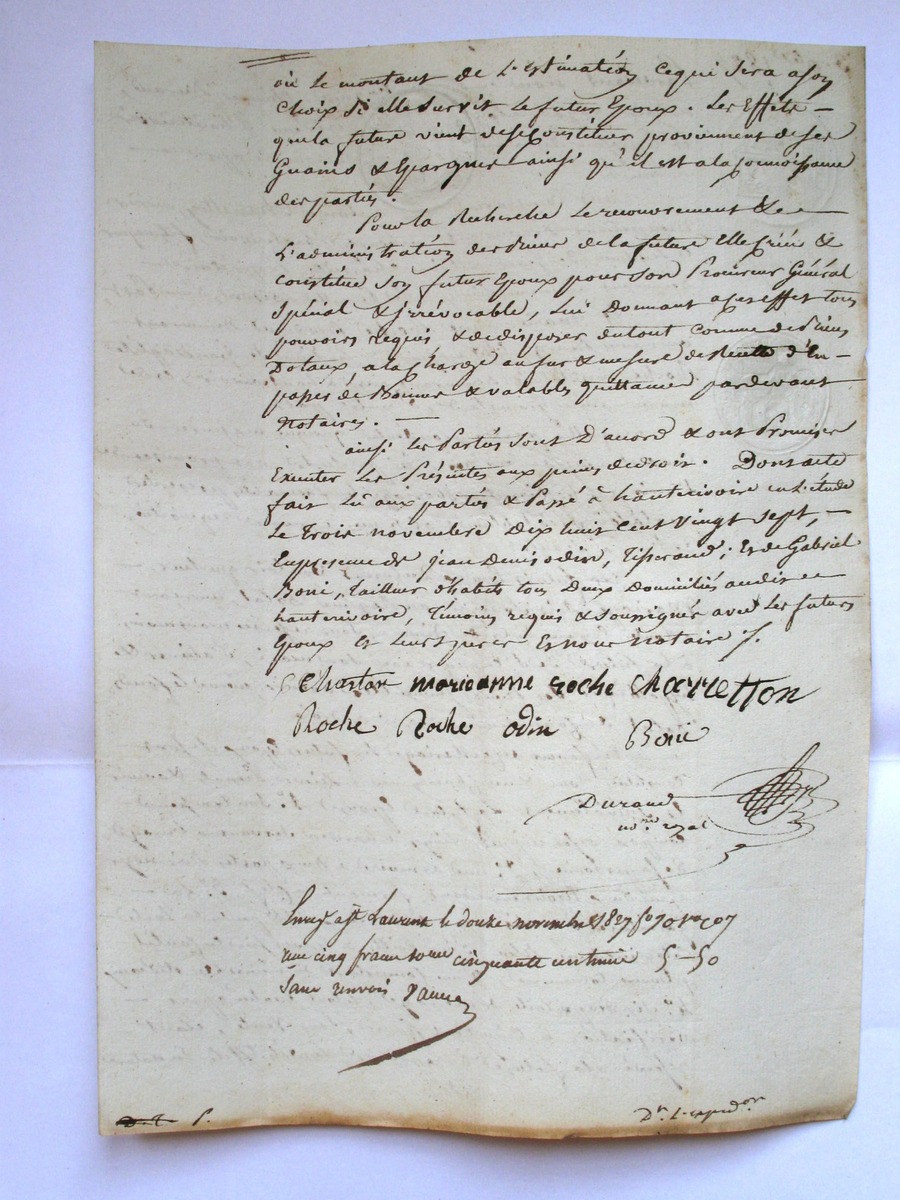 ou le montant de L'estimation ce qui sera a son
choix si elle survit le futur Epoux. Les Effets
que la future vient de se constituer proviennent de ses
Guains & Epargnes ainsi qu'il est a la connoissance
des parties.
Pour la Recherche le recouvrement &
L'administration des Biens de la future Elle créé &
constitue son futur Epoux pour son Procureur Général
Spécial & Irrévocable, Lui Donnant a ces effet tous
pouvoirs requis, & de disposer du tout comme de Biens
Dotaux, a la charge au fur & mesure de Recette d'En
passer de Bonnes & valables quittances pardevant
Notaires.
ainsi les Parties sont D'accord & ont Promis
Executer les Présentes aux peines de droit. Dont acte
fait lû aux parties & Passé à hauterivoire en L'étude
Le trois novembre Dix huit cent Vingt sept,
En presence de Jean Denis odin, Tisserand, Et de Gabriel
Boni, tailleur d'habits tous Deux Domiciliés audit
hauterivoire, Témoins requis & soussignés avec les futurs
Epoux et leurs peres Et nous Notaire /.
Charton marieanne roche charretton
Roche Roche odin Boni
Durand
no.re royal
Enreg.é a S.t Laurent le douze novembre 1827 f.o 70 r.o c 7
reçu cinq francs cinquante centimes 5-50
sans renvois
P.
D.n L'exped.on